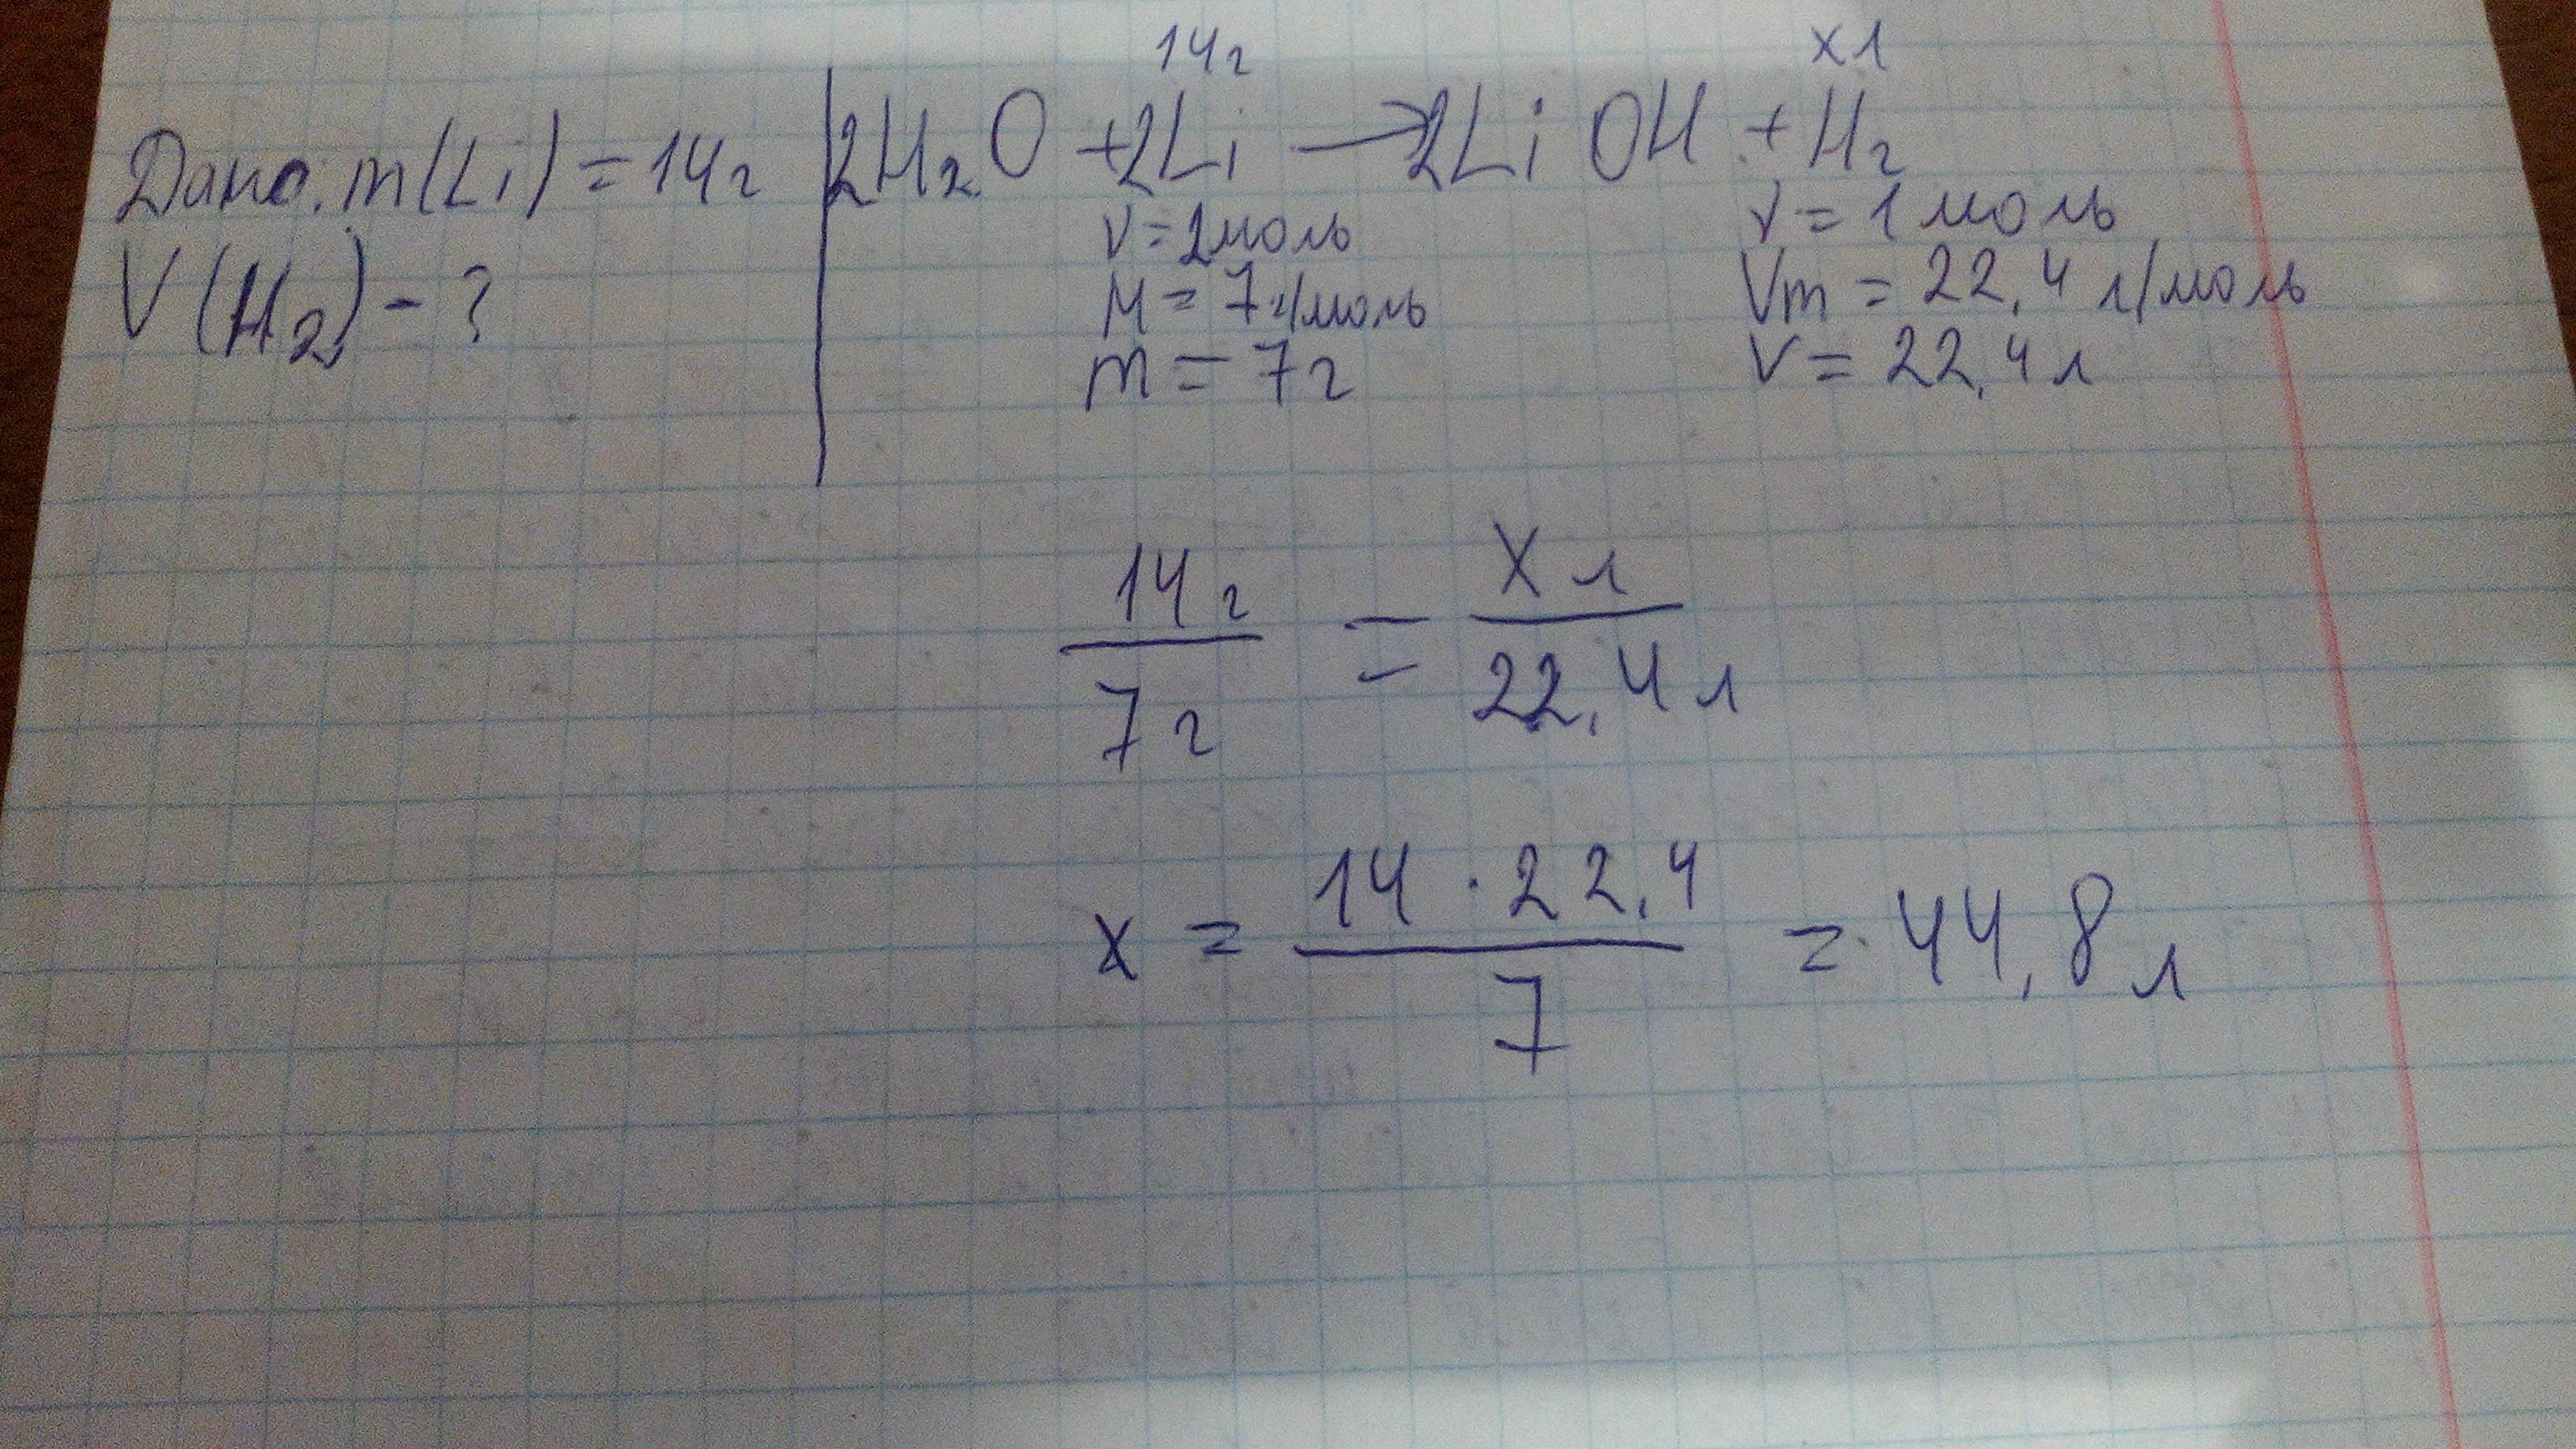 14г
xл
Дано: m(Li) = 14г
2H₂O + 2Li → 2LiOH + H₂
V(H₂) - ?
ν = 2моль
ν = 1 моль
M = 7г/моль
Vm = 22,4 л/моль
m = 7г
V = 22,4 л
14г / 7г = X л / 22,4 л
x = 14 · 22,4 / 7 = 44,8 л